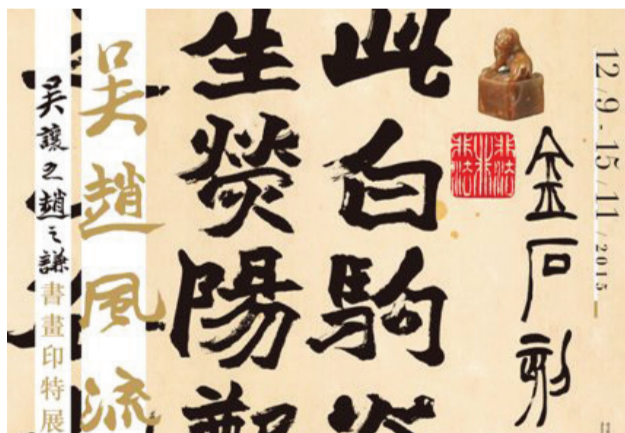 12 / 9 - 15 / 11 / 2015
金石刻
此白駒
生熒陽
吳趙風流
吳讓之趙之謙書畫印特展